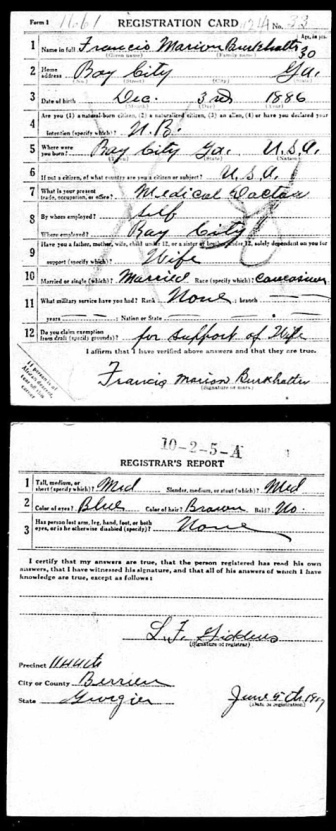 Form 1 1661 REGISTRATION CARD No. 33
Age, in yrs.
1 Name in full Francis Marion Burkhalter 30
(Given name) (Family name)
2 Home address Bay City Ga.
(No.) (Street) (City) (State)
3 Date of birth Dec. 3rd 1886
(Month) (Day) (Year)
4 Are you (1) a natural-born citizen, (2) a naturalized citizen, (3) an alien, (4) or have you declared your
intention (specify which)? N.B.
5 Where were you born? Bay City Ga. U.S.A.
(Town) (State) (Nation)
6 If not a citizen, of what country are you a citizen or subject? U.S.A.
7 What is your present trade, occupation, or office? Medical Doctor
8 By whom employed? Self
Where employed? Bay City
9 Have you a father, mother, wife, child under 12, or a sister or brother under 12, solely dependent on you for
support (specify which)? Wife
10 Married or single (which)? Married Race (specify which)? Caucasian
11 What military service have you had? Rank None ; branch
years ; Nation or State
12 Do you claim exemption from draft (specify grounds)? for support of Wife
I affirm that I have verified above answers and that they are true.
Francis Marion Burkhalter
(Signature or mark)
If person is of African descent, tear off this corner
10-2-5-A
REGISTRAR'S REPORT
1 Tall, medium, or short (specify which)? Med Slender, medium, or stout (which)? Med
2 Color of eyes? Blue Color of hair? Brown Bald? No.
3 Has person lost arm, leg, hand, foot, or both eyes, or is he otherwise disabled (specify)? None
I certify that my answers are true, that the person registered has read his own
answers, that I have witnessed his signature, and that all of his answers of which I have
knowledge are true, except as follows:
L. F. Giddens
(Signature of registrar)
Precinct 1144th
City or County Berrien
State Georgia June 5th 1917
(Date of registration)